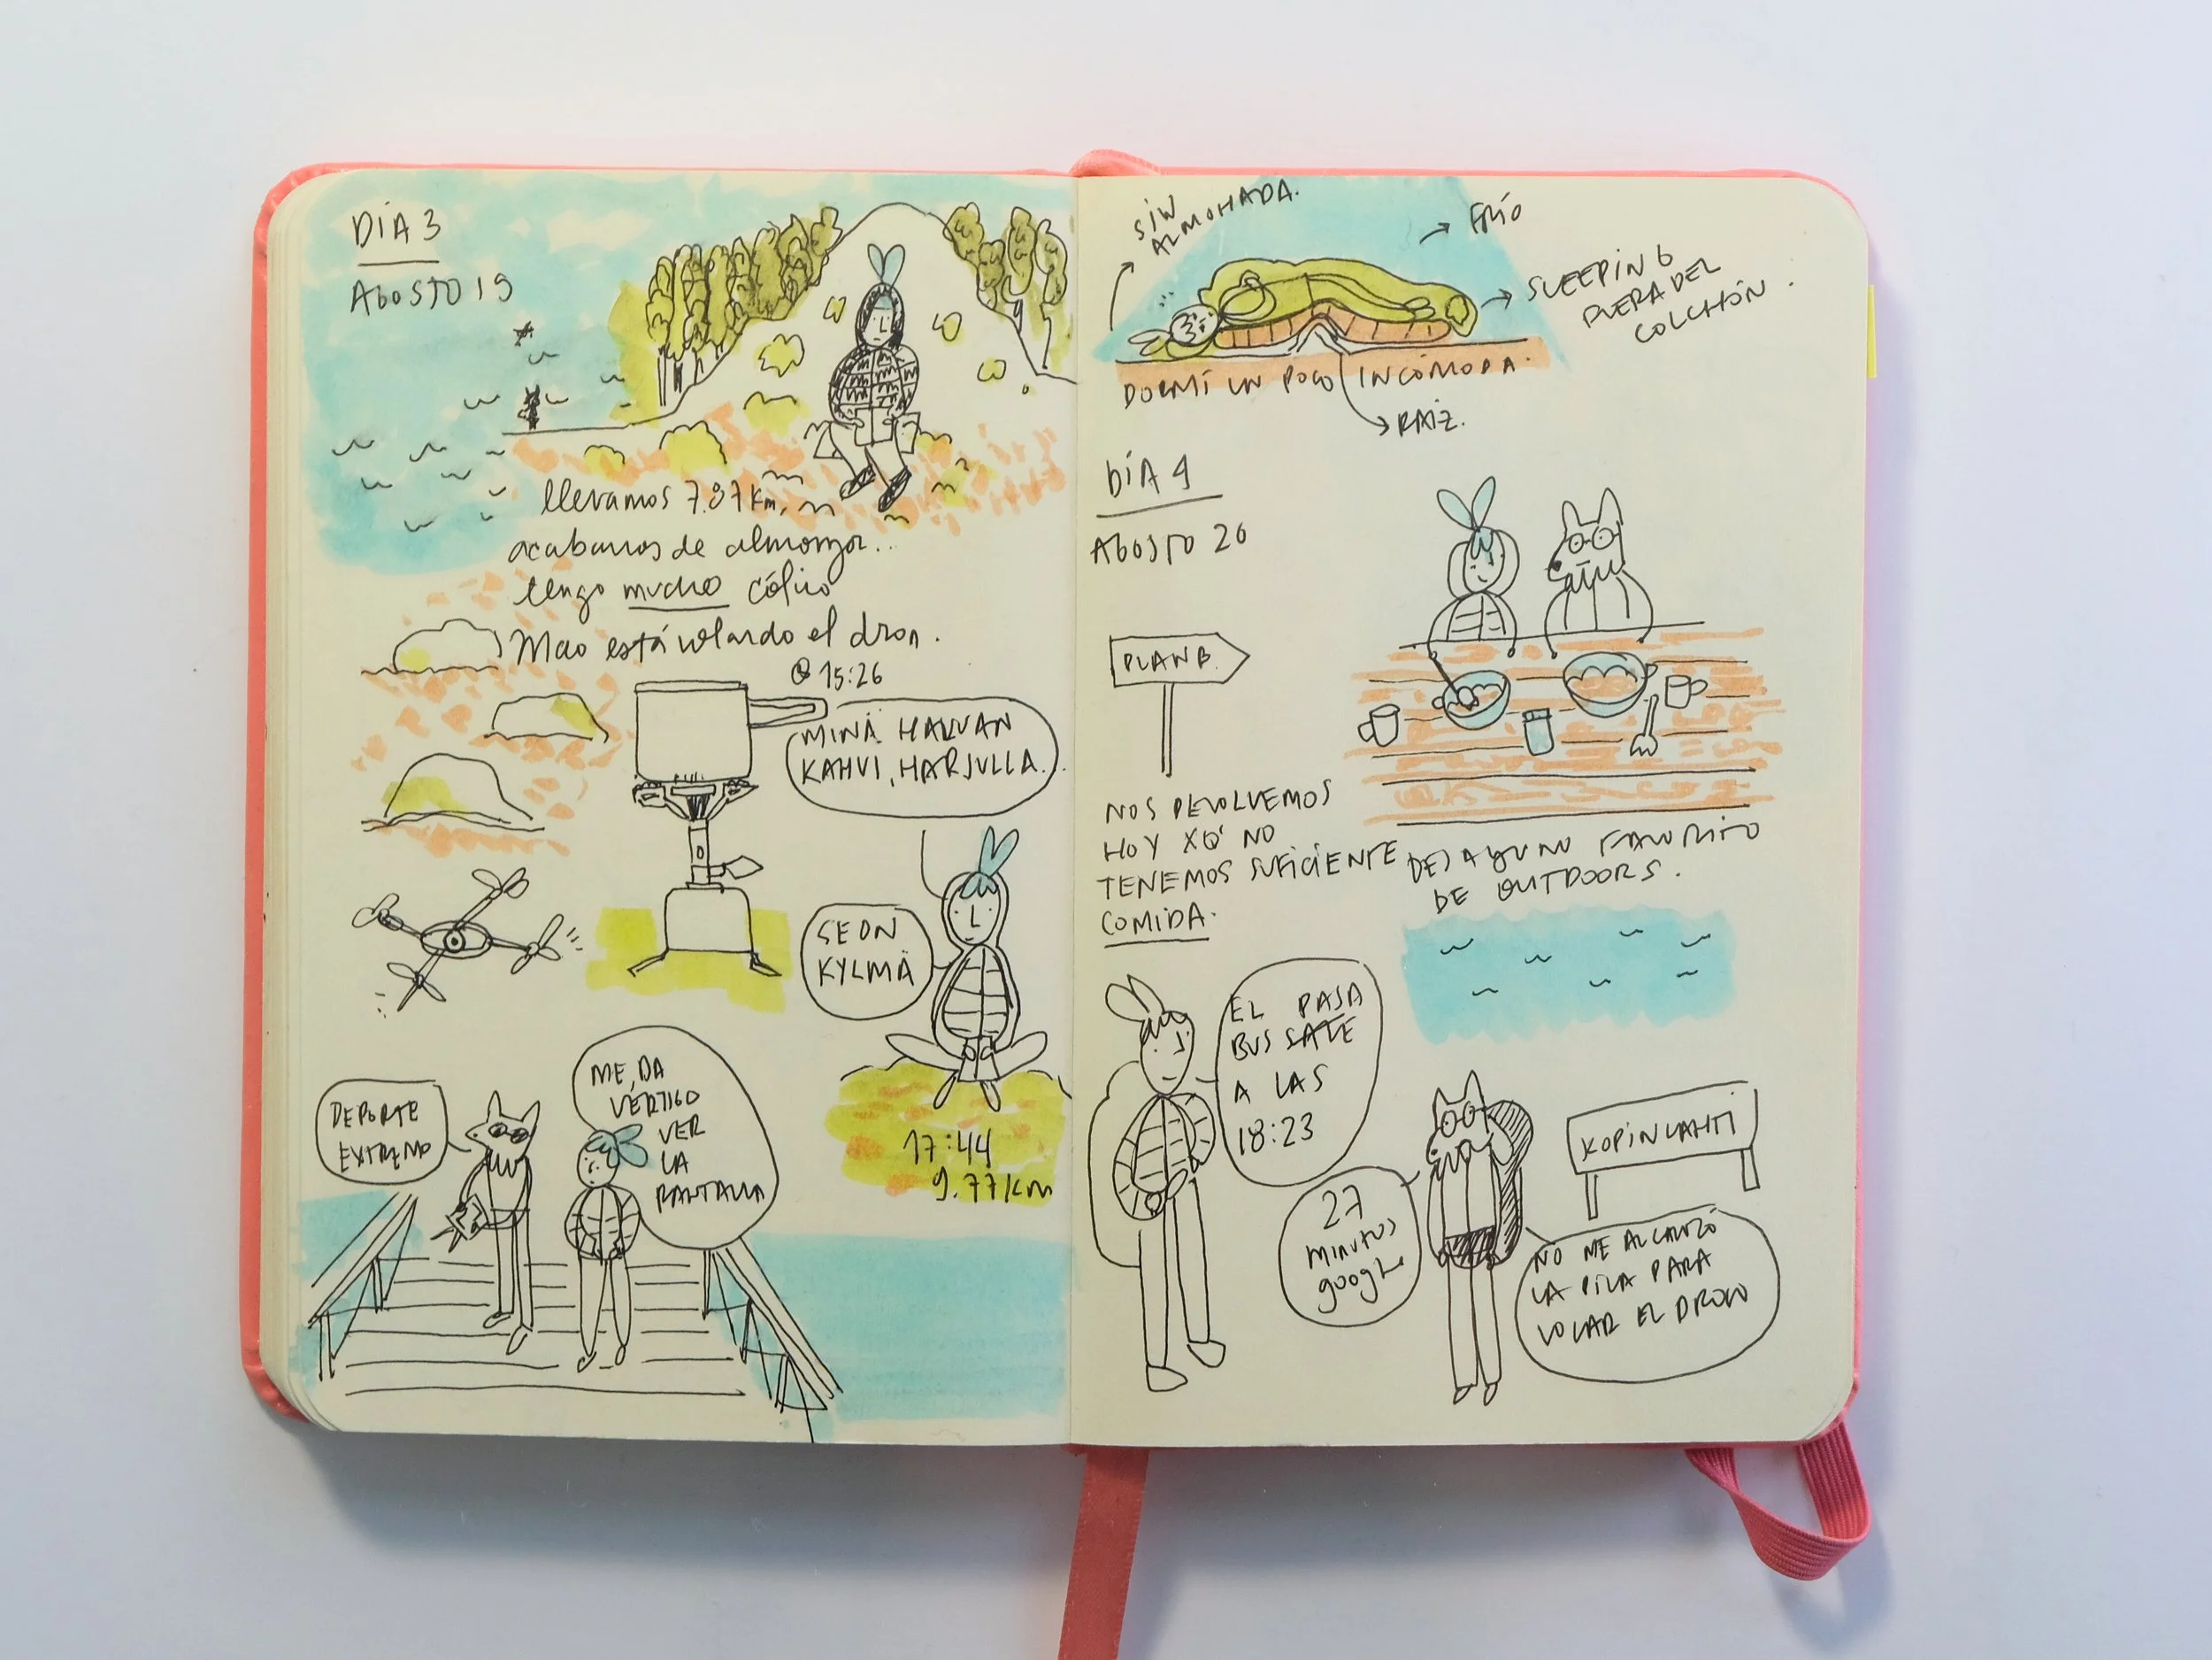 DÍA 3
AGOSTO 19
llevamos 7.87 km,
acabamos de almorzar...
tengo mucho cólico
Mao está volando el dron.
@ 15:26
MINÄ HALUAN
KAHVI, HARJULLA.
SE ON
KYLMÄ
17:44
9.77 km
DEPORTE
EXTREMO
ME DA
VÉRTIGO
VER
LA
PANTALLA
SIN
ALMOHADA.
FRÍO
SLEEPING
FUERA DEL
COLCHÓN.
DORMÍ UN POCO INCÓMODA.
RAÍZ.
DÍA 4
AGOSTO 20
PLAN B.
NOS DEVOLVEMOS
HOY XQ' NO
TENEMOS SUFICIENTE
COMIDA.
DESAYUNO FAVORITO
DE OUTDOORS.
EL PASA
BUS SALE
A LAS
18:23
27
minutos
google
KOPINLAHTI
NO ME ALCANZÓ
LA PILA PARA
VOLAR EL DRON